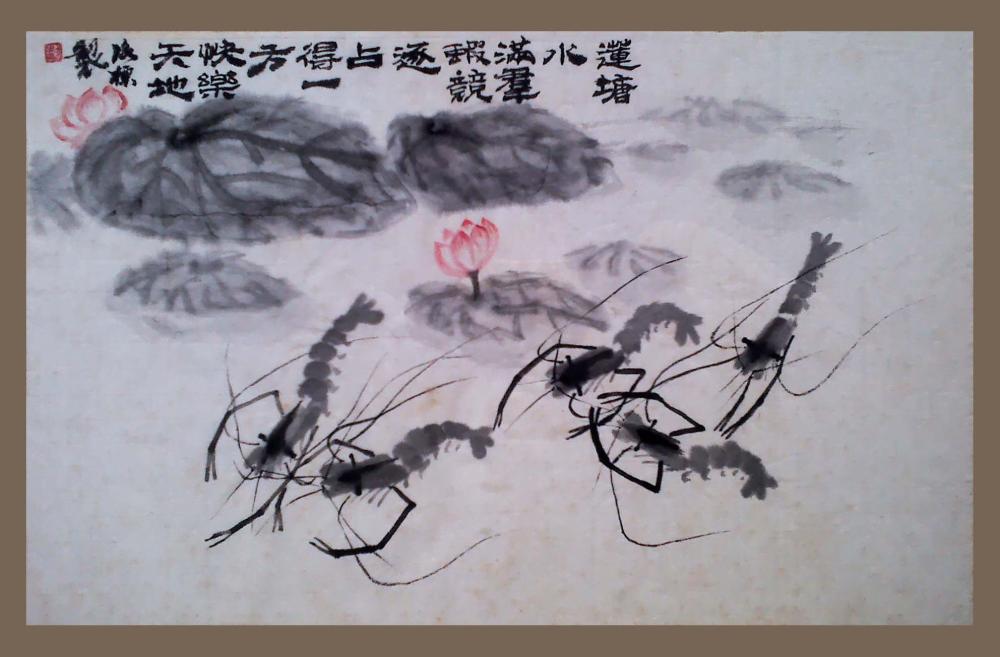 蓮塘
水
滿羣
蝦競
逐
占
得一
方
快樂
天地
製